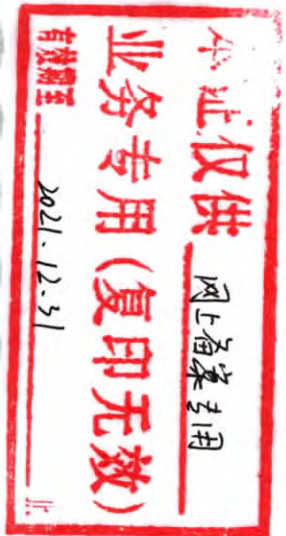 本证仅供 网上备案专用
业务专用(复印无效)
有效期至 2021.12.31 止